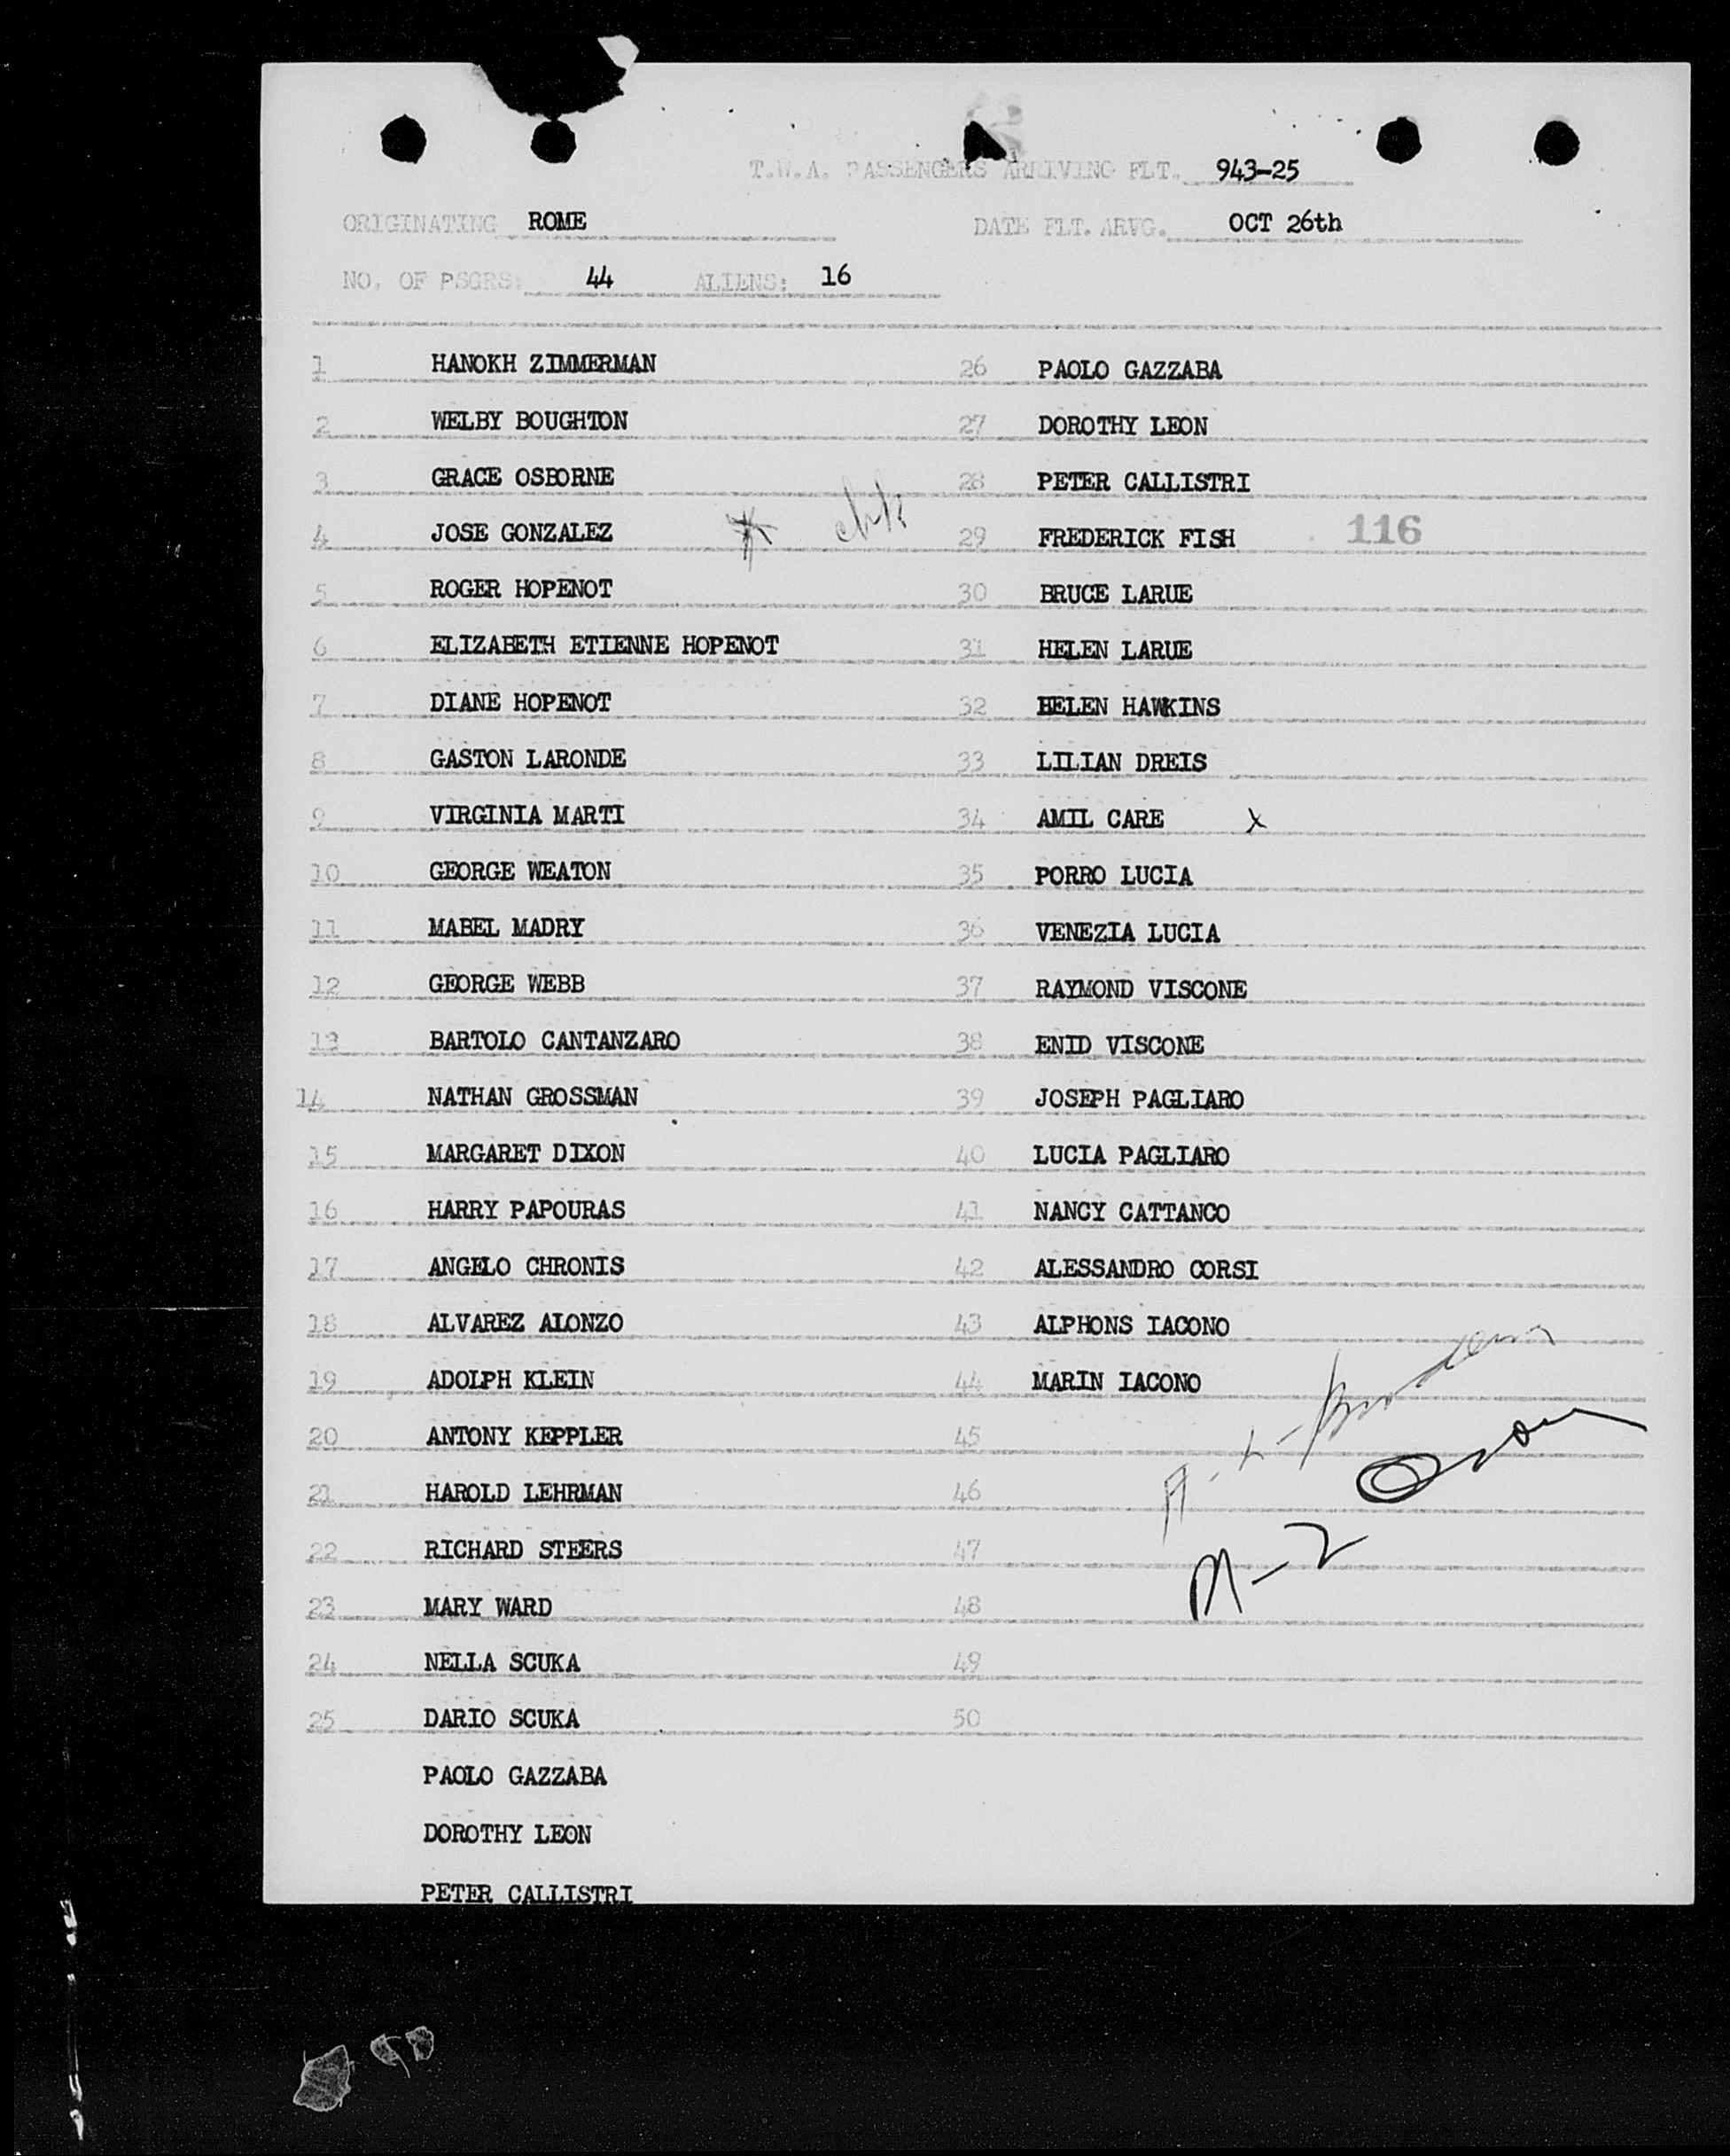 T.W.A. PASSENGERS ARRIVING FLT. 943-25
ORIGINATING ROME DATE FLT. ARVG. OCT 26th
NO. OF PSGRS: 44 ALIENS: 16
1 HANOKH ZIMMERMAN
2 WELBY BOUGHTON
3 GRACE OSBORNE
4 JOSE GONZALEZ
5 ROGER HOPENOT
6 ELIZABETH ETIENNE HOPENOT
7 DIANE HOPENOT
8 GASTON LARONDE
9 VIRGINIA MARTI
10 GEORGE WEATON
11 MABEL MADRY
12 GEORGE WEBB
13 BARTOLO CANTANZARO
14 NATHAN GROSSMAN
15 MARGARET DIXON
16 HARRY PAPOURAS
17 ANGELO CHRONIS
18 ALVAREZ ALONZO
19 ADOLPH KLEIN
20 ANTONY KEPPLER
21 HAROLD LEHRMAN
22 RICHARD STEERS
23 MARY WARD
24 NELLA SCUKA
25 DARIO SCUKA
PAOLO GAZZABA
DOROTHY LEON
PETER CALLISTRI
26 PAOLO GAZZABA
27 DOROTHY LEON
28 PETER CALLISTRI
29 FREDERICK FISH 116
30 BRUCE LARUE
31 HELEN LARUE
32 HELEN HAWKINS
33 LILIAN DREIS
34 AMIL CARE X
35 PORRO LUCIA
36 VENEZIA LUCIA
37 RAYMOND VISCONE
38 ENID VISCONE
39 JOSEPH PAGLIARO
40 LUCIA PAGLIARO
41 NANCY CATTANCO
42 ALESSANDRO CORSI
43 ALPHONS IACONO
44 MARIN IACONO
45
46
47
48
49
50